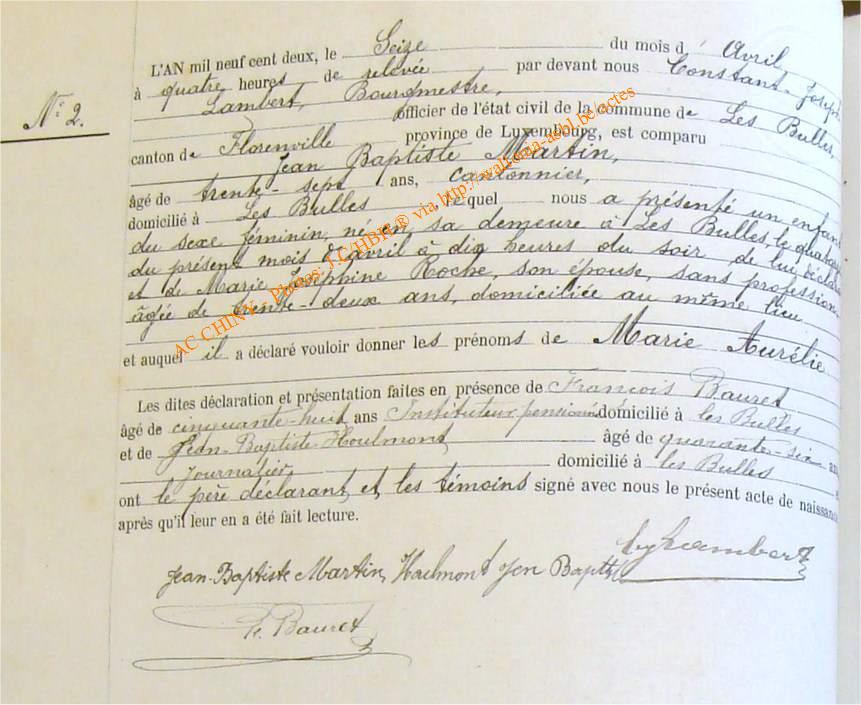 N° 2.
L'AN mil neuf cent deux, le Seize du mois d' Avril
à quatre heures de relevée par devant nous Constant-Joseph
Lambert, Bourgmestre,
officier de l'état civil de la commune de Les Bulles,
canton de Florenville province de Luxembourg, est comparu
Jean Baptiste Martin,
âgé de trente-sept ans, cantonnier,
domicilié à Les Bulles, lequel nous a présenté un enfant
du sexe féminin, né en sa demeure à Les Bulles, le quatorze
du présent mois d'avril à dix heures du soir de lui, déclarant
et de Marie Joséphine Roche, son épouse, sans profession,
âgée de trente-deux ans, domiciliée au même lieu
et auquel il a déclaré vouloir donner les prénoms de Marie Aurélie
Les dites déclaration et présentation faites en présence de François Bauret
âgé de cinquante-huit ans Instituteur pensionné domicilié à les Bulles
et de Jean-Baptiste Houlmont âgé de quarante-six ans
Journalier, domicilié à les Bulles
ont le père déclarant et les témoins signé avec nous le présent acte de naissance
après qu'il leur en a été fait lecture.
Jean-Baptiste Martin Houlmont Jen Baptt Lambert
F. Bauret
AC CHINY - Photos: J.C/HBH © via http://www.waltonia-asbl.be/actes